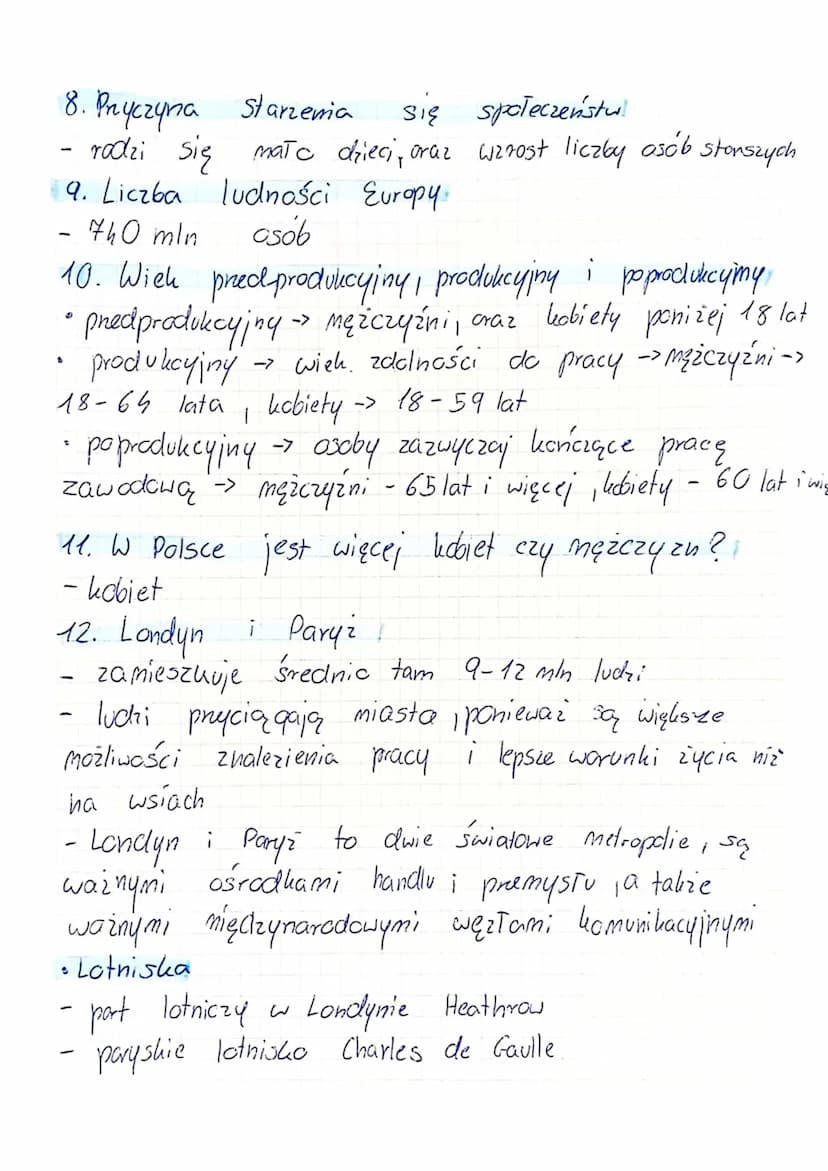 8. Przyczyna starzenia się społeczeństw
- rodzi się mało dzieci, oraz wzrost liczby osób starszych
9. Liczba ludności Europy
- 740 mln osób
10. Wiek przedprodukcyjny, produkcyjny i poprodukcyjny
• przedprodukcyjny -> mężczyźni, oraz kobiety poniżej 18 lat
• produkcyjny -> wiek zdolności do pracy -> mężczyźni ->
18-64 lata, kobiety -> 18-59 lat
• poprodukcyjny -> osoby zazwyczaj kończące pracę
zawodową -> mężczyźni - 65 lat i więcej, kobiety - 60 lat i wię
11. W Polsce jest więcej kobiet czy mężczyzn?
- kobiet
12. Londyn i Paryż
- zamieszkuje średnio tam 9-12 mln ludzi
- ludzi przyciągają miasta, ponieważ są większe
możliwości znalezienia pracy i lepsze warunki życia niż
na wsiach
- Londyn i Paryż to dwie światowe metropolie, są
ważnymi ośrodkami handlu i przemysłu, a także
ważnymi międzynarodowymi węzłami komunikacyjnymi
• Lotniska
- port lotniczy w Londynie Heathrow
- paryskie lotnisko Charles de Gaulle